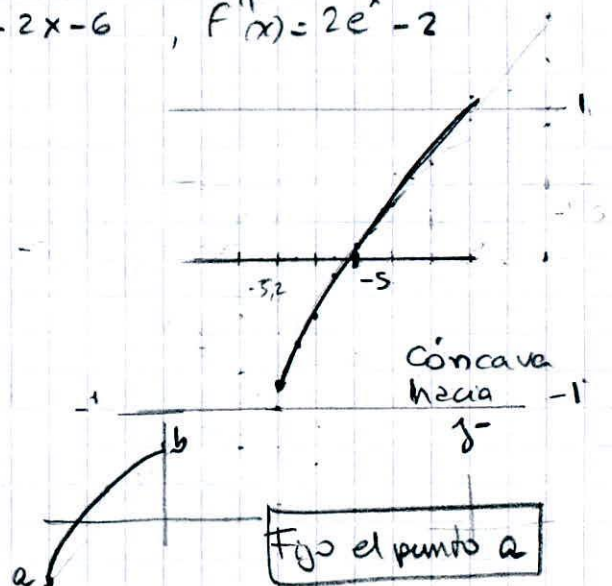 - 2x - 6 , F''(x) = 2e^x - 2
1
-5,2 -5
Cóncava
hacia
y-
-1 -1
b
a
Fijo el punto a